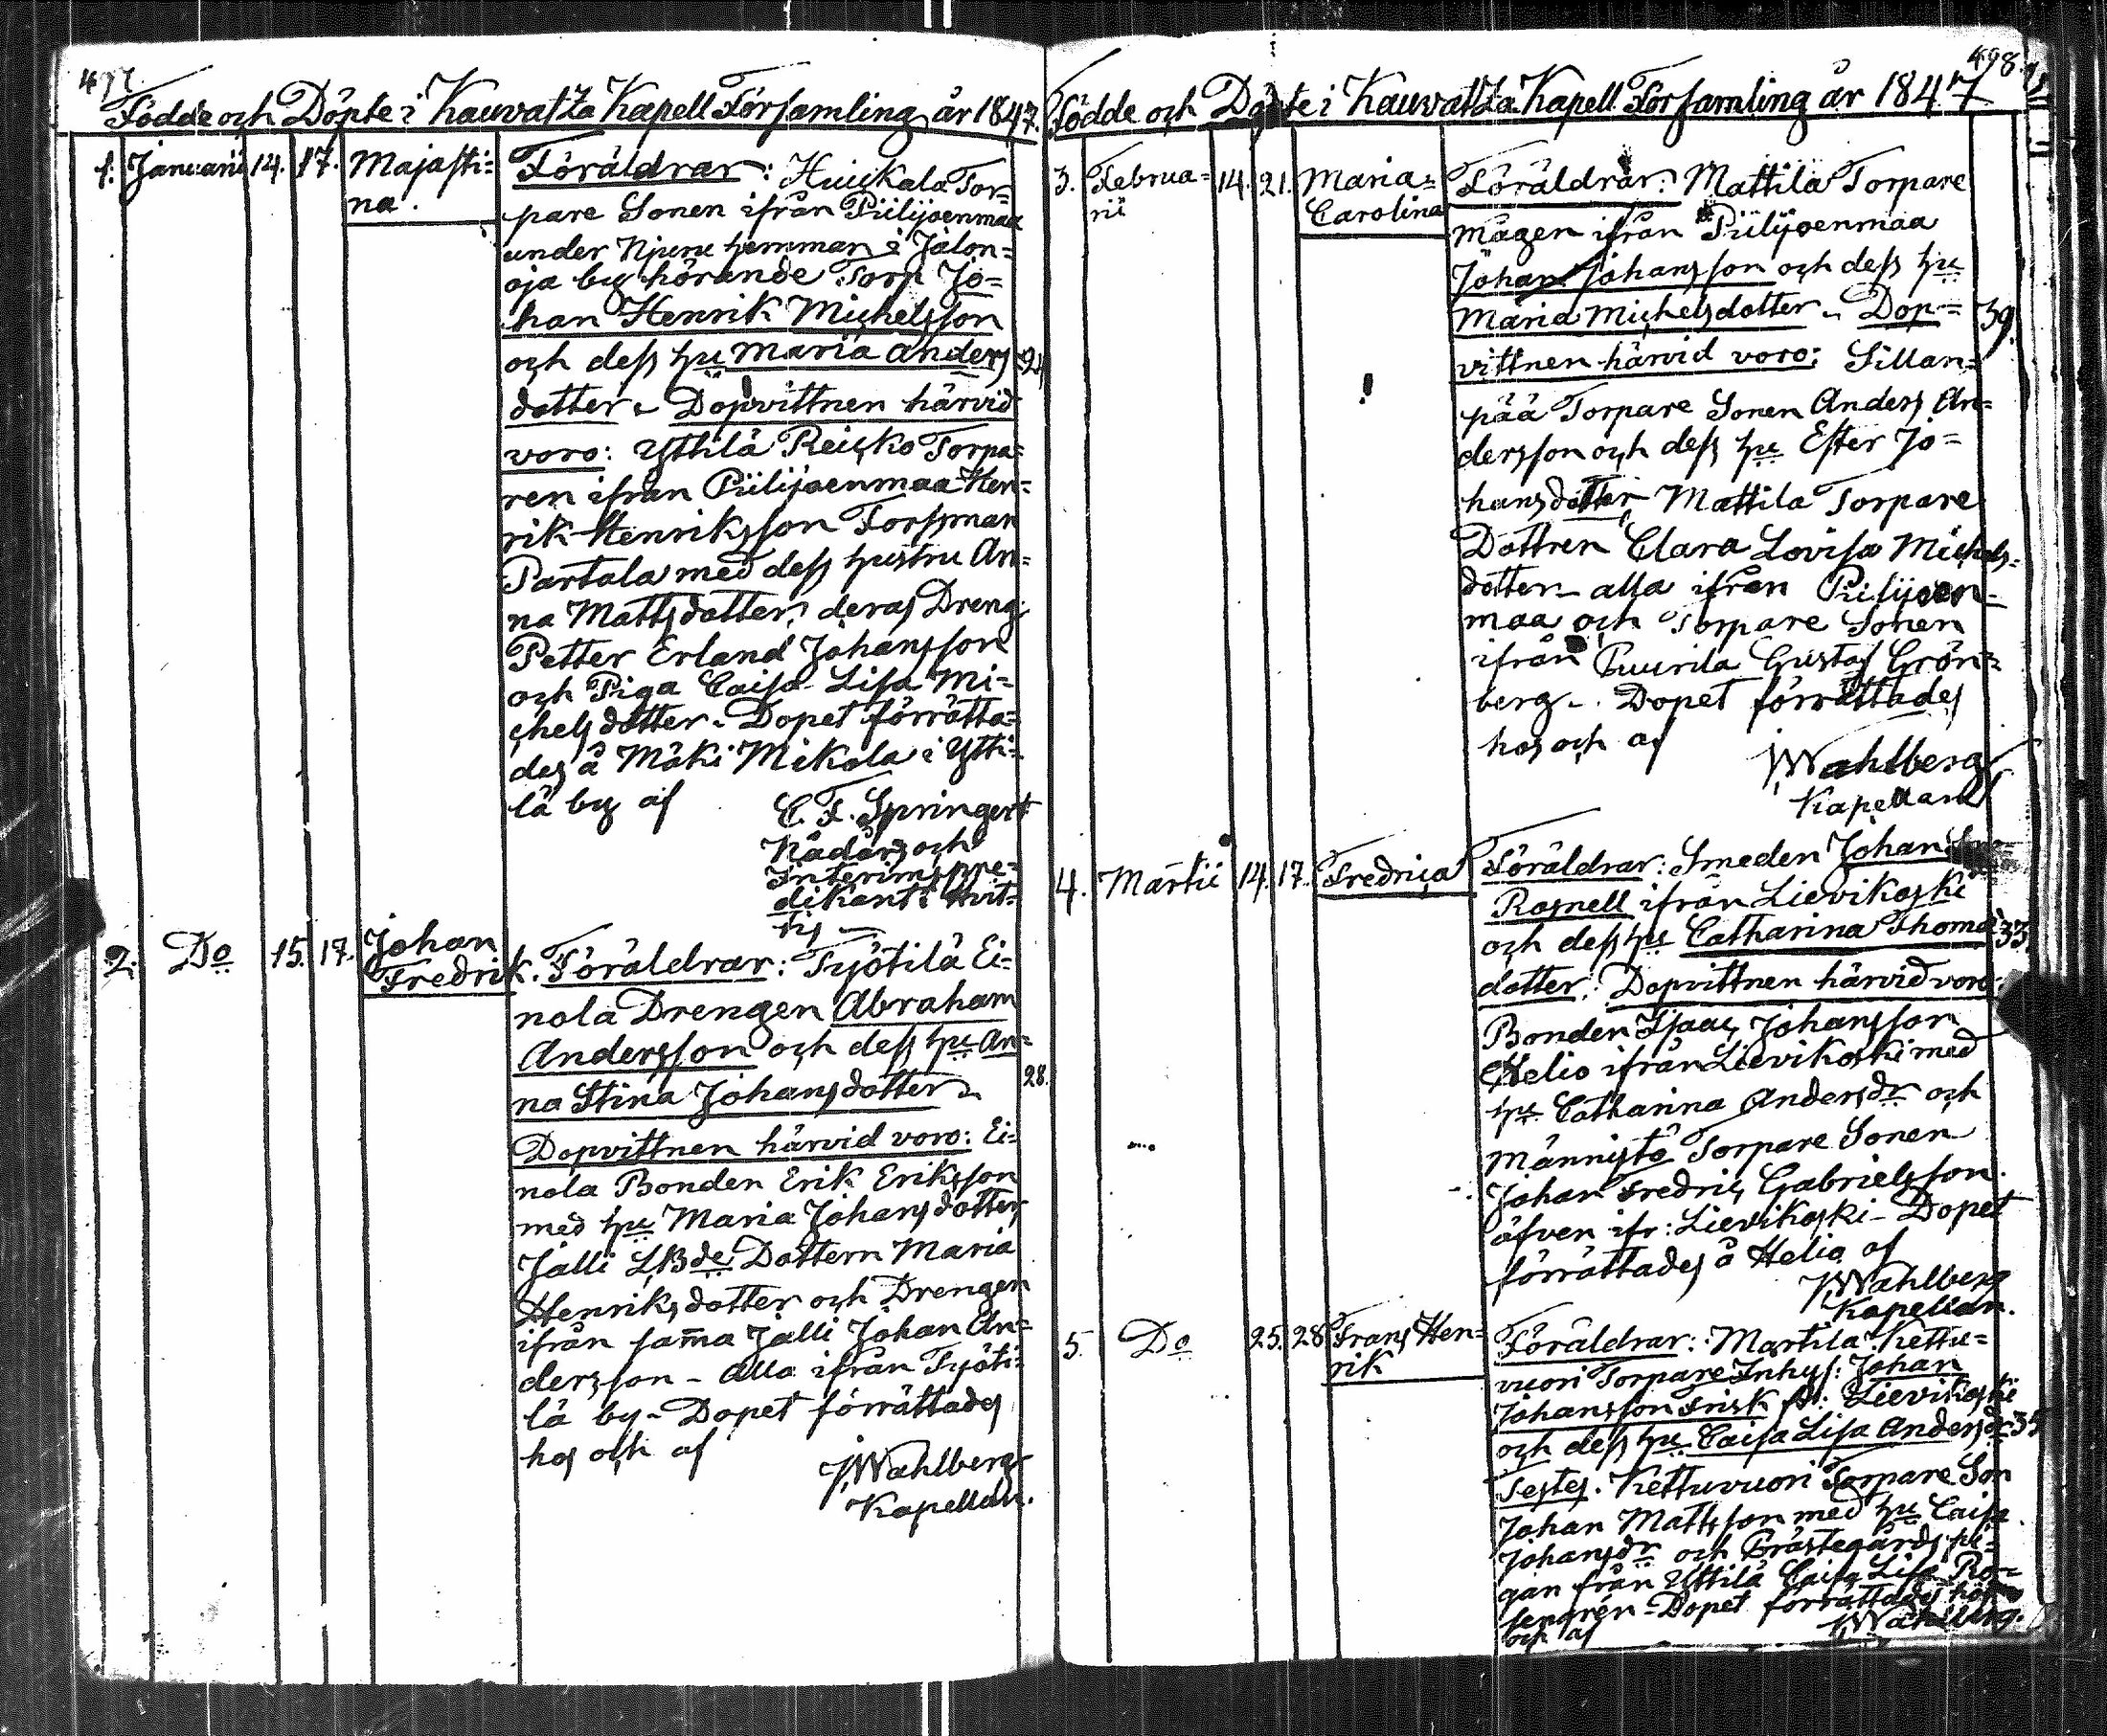 497
Födde och Döpte i Kauvatza Kapell Församling år 1847.
1. Januarii 14. 17. Majasti=
na.
Föräldrar: Huickala Tor=
pare Sonen ifrån Piilijoenmaa
under Njuru hemman i Jalon=
oja by hörande Torp Jo=
han Henrik Michelsson
och dess hu Maria Anders
dotter. Döpvittnen härvid
voro: Yttilä Reicko Torpa=
ren ifrån Piilijoenmaa Hen=
rik Henriksson Torpman
Partala med dess hustru An=
na Mattsdotter, deras Dreng
Petter Erland Johansson
och Piga Caisa Lisa Mi=
chelsdotter. Dopet förrätta=
des å Mäki Mikola i Ytti=
lä by af
C. F. Springert
Nådårs och
Interimspre=
dikant i Hvit=
tis
2. Do 15. 17. Johan
Fredrik.
Föräldrar: Työtilä Ei=
nola Drengen Abraham
Andersson och dess hu An=
na Stina Johansdotter 28.
Dopvittnen härvid voro: Ei=
nola Bonden Erik Eriksson
med hu Maria Johansdotter
Jalli LBde Dottern Maria
Henriksdotter och Drengen
ifrån sam̄a Jalli Johan An=
dersson - Alla ifrån Työti=
lä by - Dopet förrättades
hos och af
JWahlberg
Kapellan.
498.
Födde och Döpte i Kauvatza Kapell Församling år 1847
3. Februa=
rii
14. 21. Maria=
Carolina
Föräldrar: Mattila Torpare
mågen ifrån Piilijoenmaa
Johan Johansson och dess hu
Maria Michelsdotter. Dop= 39.
vittnen härvid voro: Sillan=
pää Torpare Sonen Anders An=
dersson och dess hu Ester Jo=
hansdotter, Mattila Torpare
Dottren Clara Lovisa Michels=
dotter alla ifrån Piilijoen=
maa och Torpare Sonen
ifrån Puurila Gustaf Grön=
berg. Dopet förrättades
hos och af
JWahlberg
Kapellan
4. Martii 14. 17. Fredrica
Föräldrar: Smeden Johan
Rosnell ifrån Lievikoski
och dess hu Catharina Thomas 33
dotter: Dopvittnen härvid voro:
Bonden Isaac Johansson
Helio ifrån Lievikoski med
hu Catharina Andersdr och
Männistö Torpare Sonen
Johan Fredric Gabrielsson
äfven ifr: Lievikoski - Dopet
förrättades å Helio af
JWahlberg
Kapellan.
5. Do 25. 28. Frans Hen=
rik
Föräldrar: Martila Kettu=
vuori Torpare Inhys: Johan
Johansson Frisk fr: Lievikoski
och dess hu Caisa Lisa Andersdr 35
Testes. Kettuvuori Torpare Son
Johan Mattsson med hu Caisa
Johansdr och Prästegårds pi=
gan från Yttilä Caisa Lisa Ro=
sengrén - Dopet förrättades hos
och af
JWahlberg.